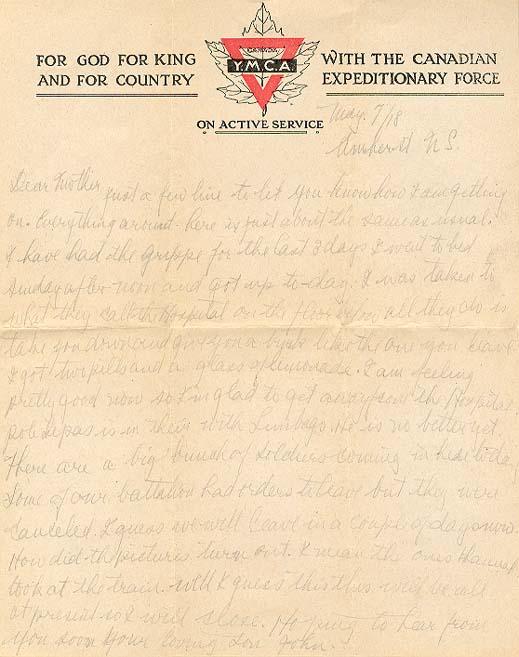 FOR GOD FOR KING
AND FOR COUNTRY
CANADIAN
Y.M.C.A.
WITH THE CANADIAN
EXPEDITIONARY FORCE
ON ACTIVE SERVICE
May. 7/18
Amherst N S.
Dear Mother
just a few line to let you know how I am getting
on. Everything around here is just about the same as usual.
I have had the Grippe for the last 3 days I went to bed
Sunday after noon and got up to-day. I was taken to
what they call the Hospital on the floor all they do is
take you down and give you a bunk like the one you leave
I got two pills and a glass of lemonade. I am feeling
pretty good now so I'm glad to get away from the Hospital.
is in there with Lumbago. He is no better yet.
There are a big bunch of soldiers coming in here to day
Some of our battalion had orders to leave but they were
canceled. I guess we will leave in a couple of days now.
How did the pictures turn out. I mean the ones
took at the train. Well I guess this will be all
at present so I will close. Hoping to hear from
you soon Your loving Son John.